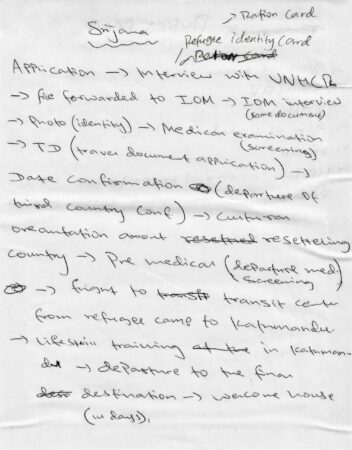 Srijana
Ration Card
Refugee identity Card
Ration Card
Application → Interview with UNHCR
→ file forwarded to IOM → IOM interview
(same document)
→ Photo (identity) → Medical examination
(screening)
→ TD (travel document application) →
Date confirmation (departure of
third country conf) → Cultural
oreantation about resettling
country → Pre medical (departure med)
screening
→ flight to transit center
from refugee camp to Katumandu
→ Lifeskill training in Katuman
du → departure to the final
destination → welcome house
(in days).